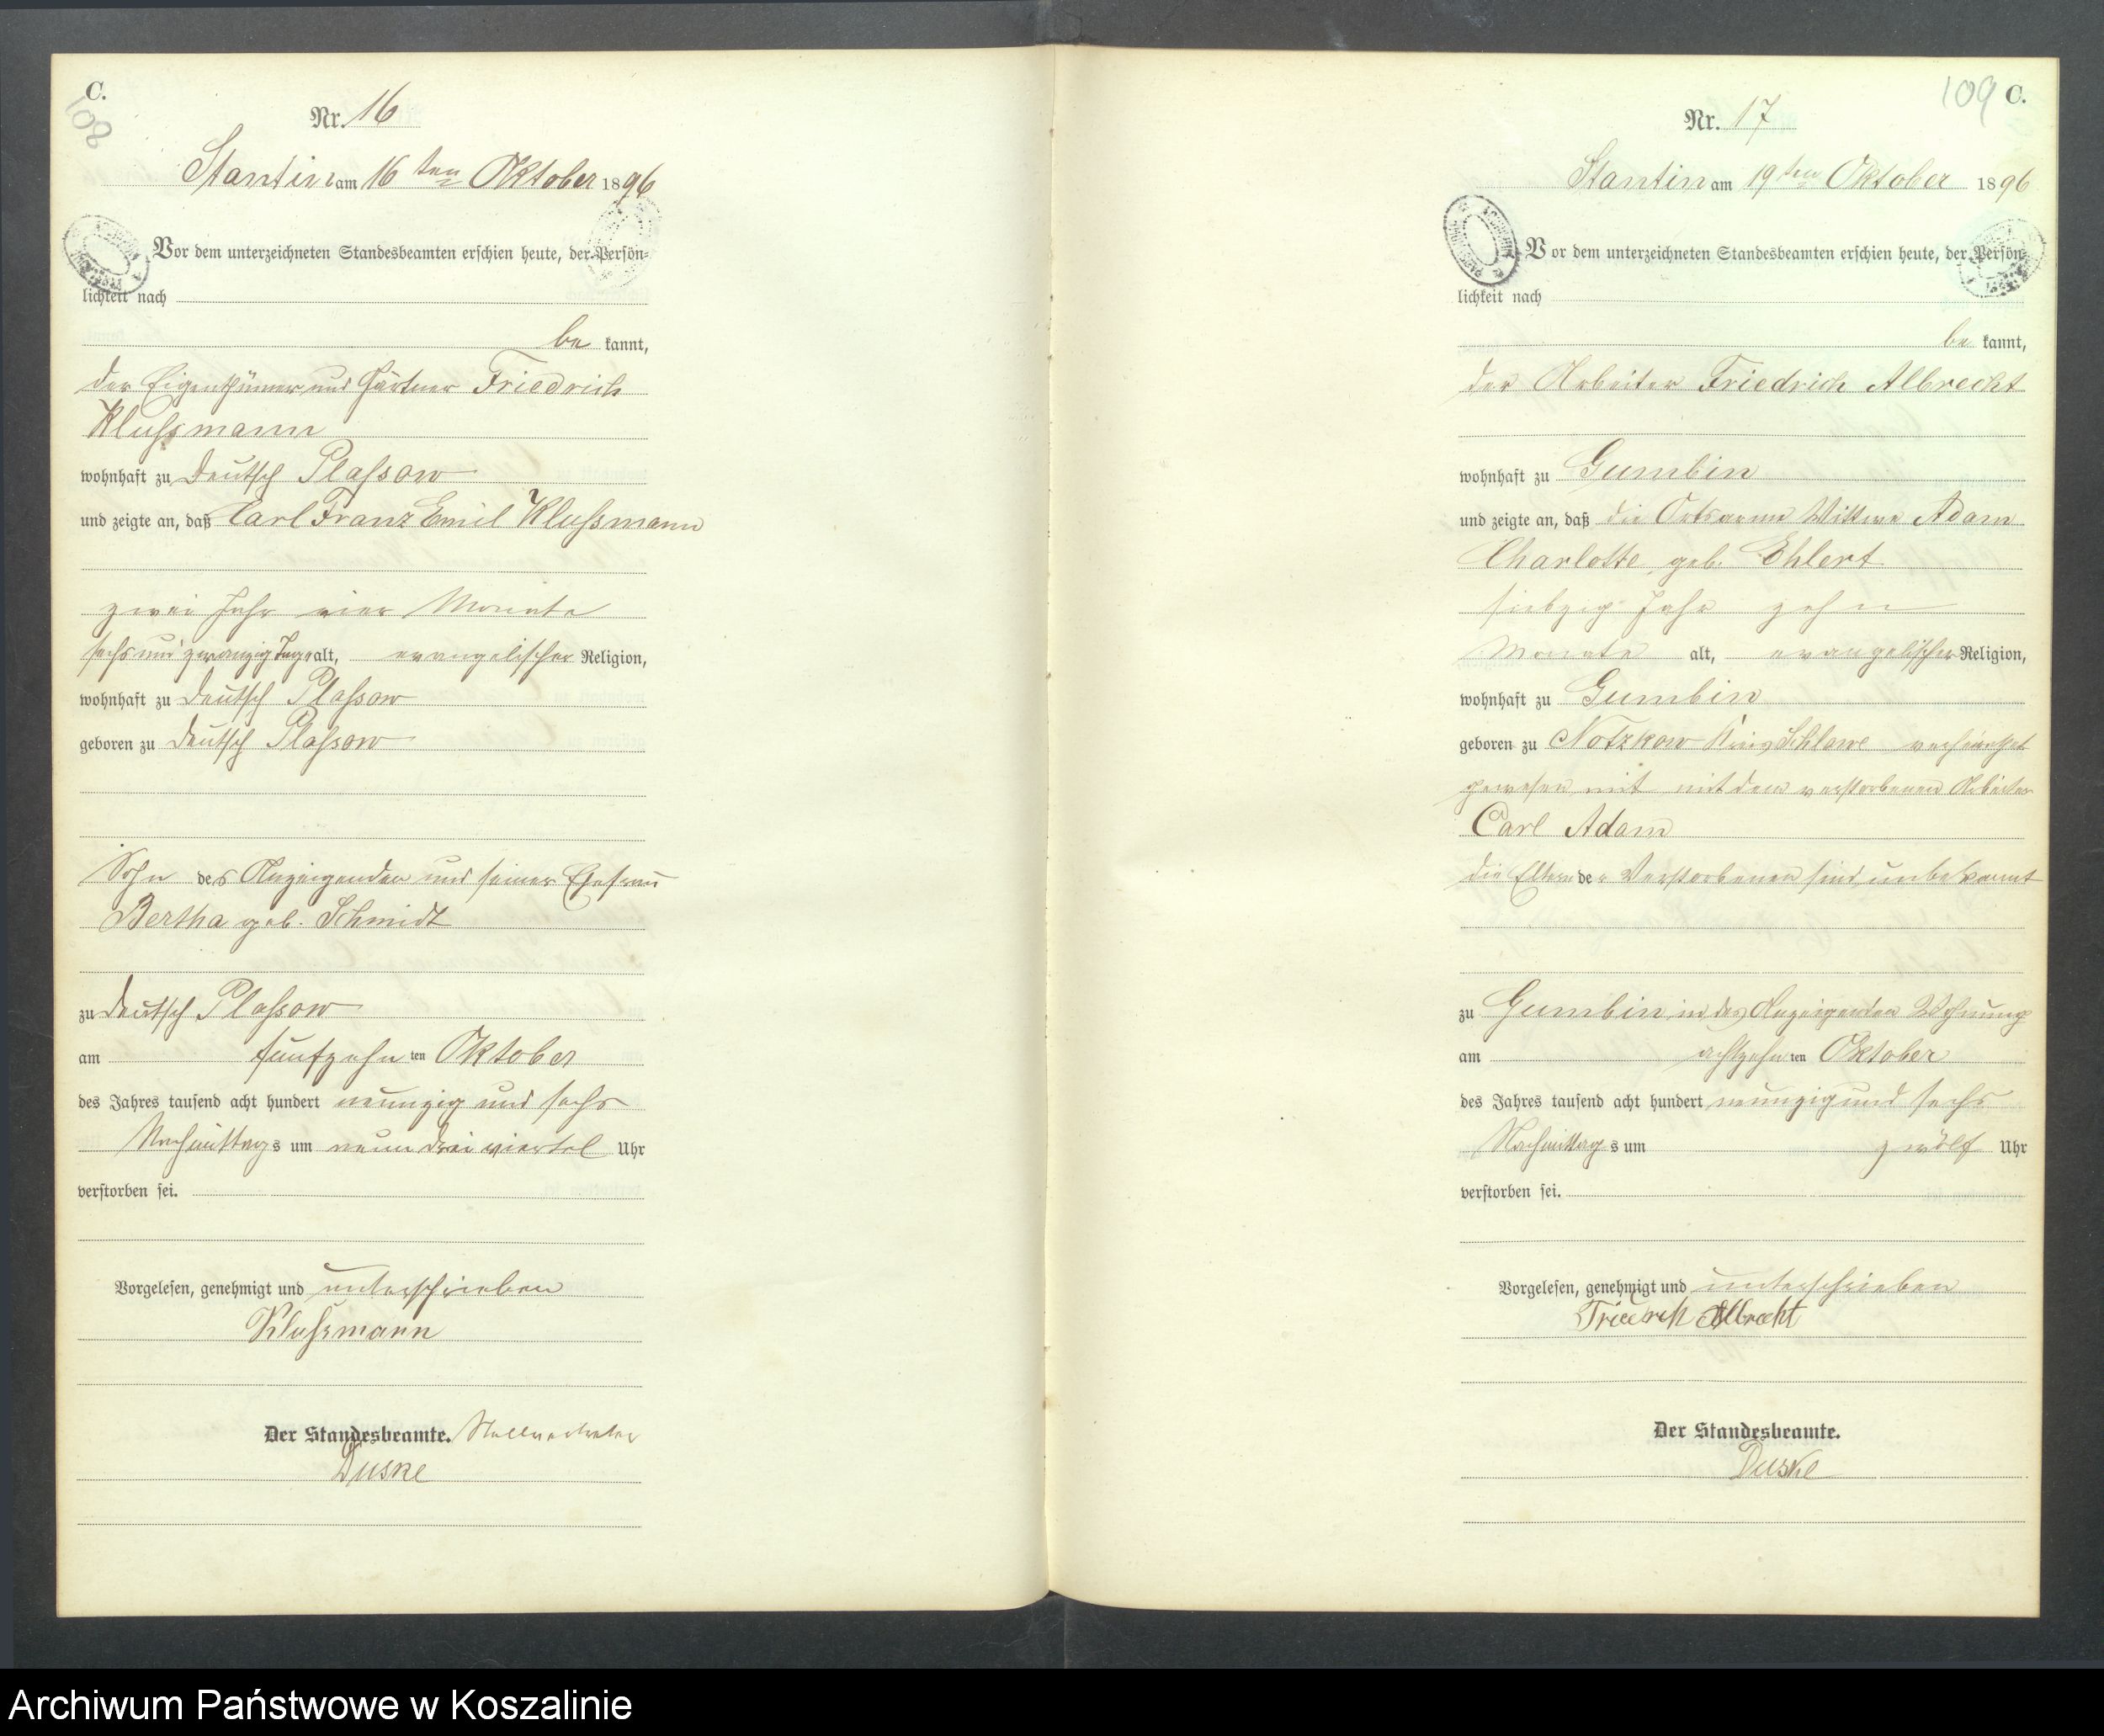 C.
108
Nr. 16
Stantin am 16 ten Oktober 1896
Vor dem unterzeichneten Standesbeamten erschien heute, der Persön-
lichkeit nach
be kannt,
der Eigenthümer und Gärtner Friedrich
Klußmann
wohnhaft zu Deutsch Plaßow
und zeigte an, daß Carl Franz Emil Klußmann
zwei Jahr vier Monate
sechs und zwanzig Tage alt, evangelischer Religion,
wohnhaft zu Deutsch Plaßow
geboren zu Deutsch Plaßow
Sohn des Anzeigenden und seiner Ehefrau
Bertha geb. Schmidt
zu Deutsch Plaßow
am fünfzehn ten Oktober
des Jahres tausend acht hundert neunzig und sechs
Nachmittags um neun drei viertel Uhr
verstorben sei.
Vorgelesen, genehmigt und unterschrieben
Klußmann
Der Standesbeamte. Stellvertreter
Duske
109 C.
Nr. 17
Stantin am 19 ten Oktober 1896
Vor dem unterzeichneten Standesbeamten erschien heute, der Persön-
lichkeit nach
be kannt,
der Arbeiter Friedrich Albrecht
wohnhaft zu Gumbin
und zeigte an, daß die Ortsarme Wittwe Adam
Charlotte geb. Ehlert
siebzig Jahr zehn
Monate alt, evangelischer Religion,
wohnhaft zu Gumbin
geboren zu Notzkow Kreis Schlawe verheirathet
gewesen mit mit dem verstorbenen Arbeiter
Carl Adam
die Eltern der Verstorbenen sind unbekannt
zu Gumbin in des Anzeigenden Wohnung
am achtzehn ten Oktober
des Jahres tausend acht hundert neunzig und sechs
Nachmittags um zwölf Uhr
verstorben sei.
Vorgelesen, genehmigt und unterschrieben
Friedrich Albrecht
Der Standesbeamte.
Duske
Archiwum Państwowe w Koszalinie